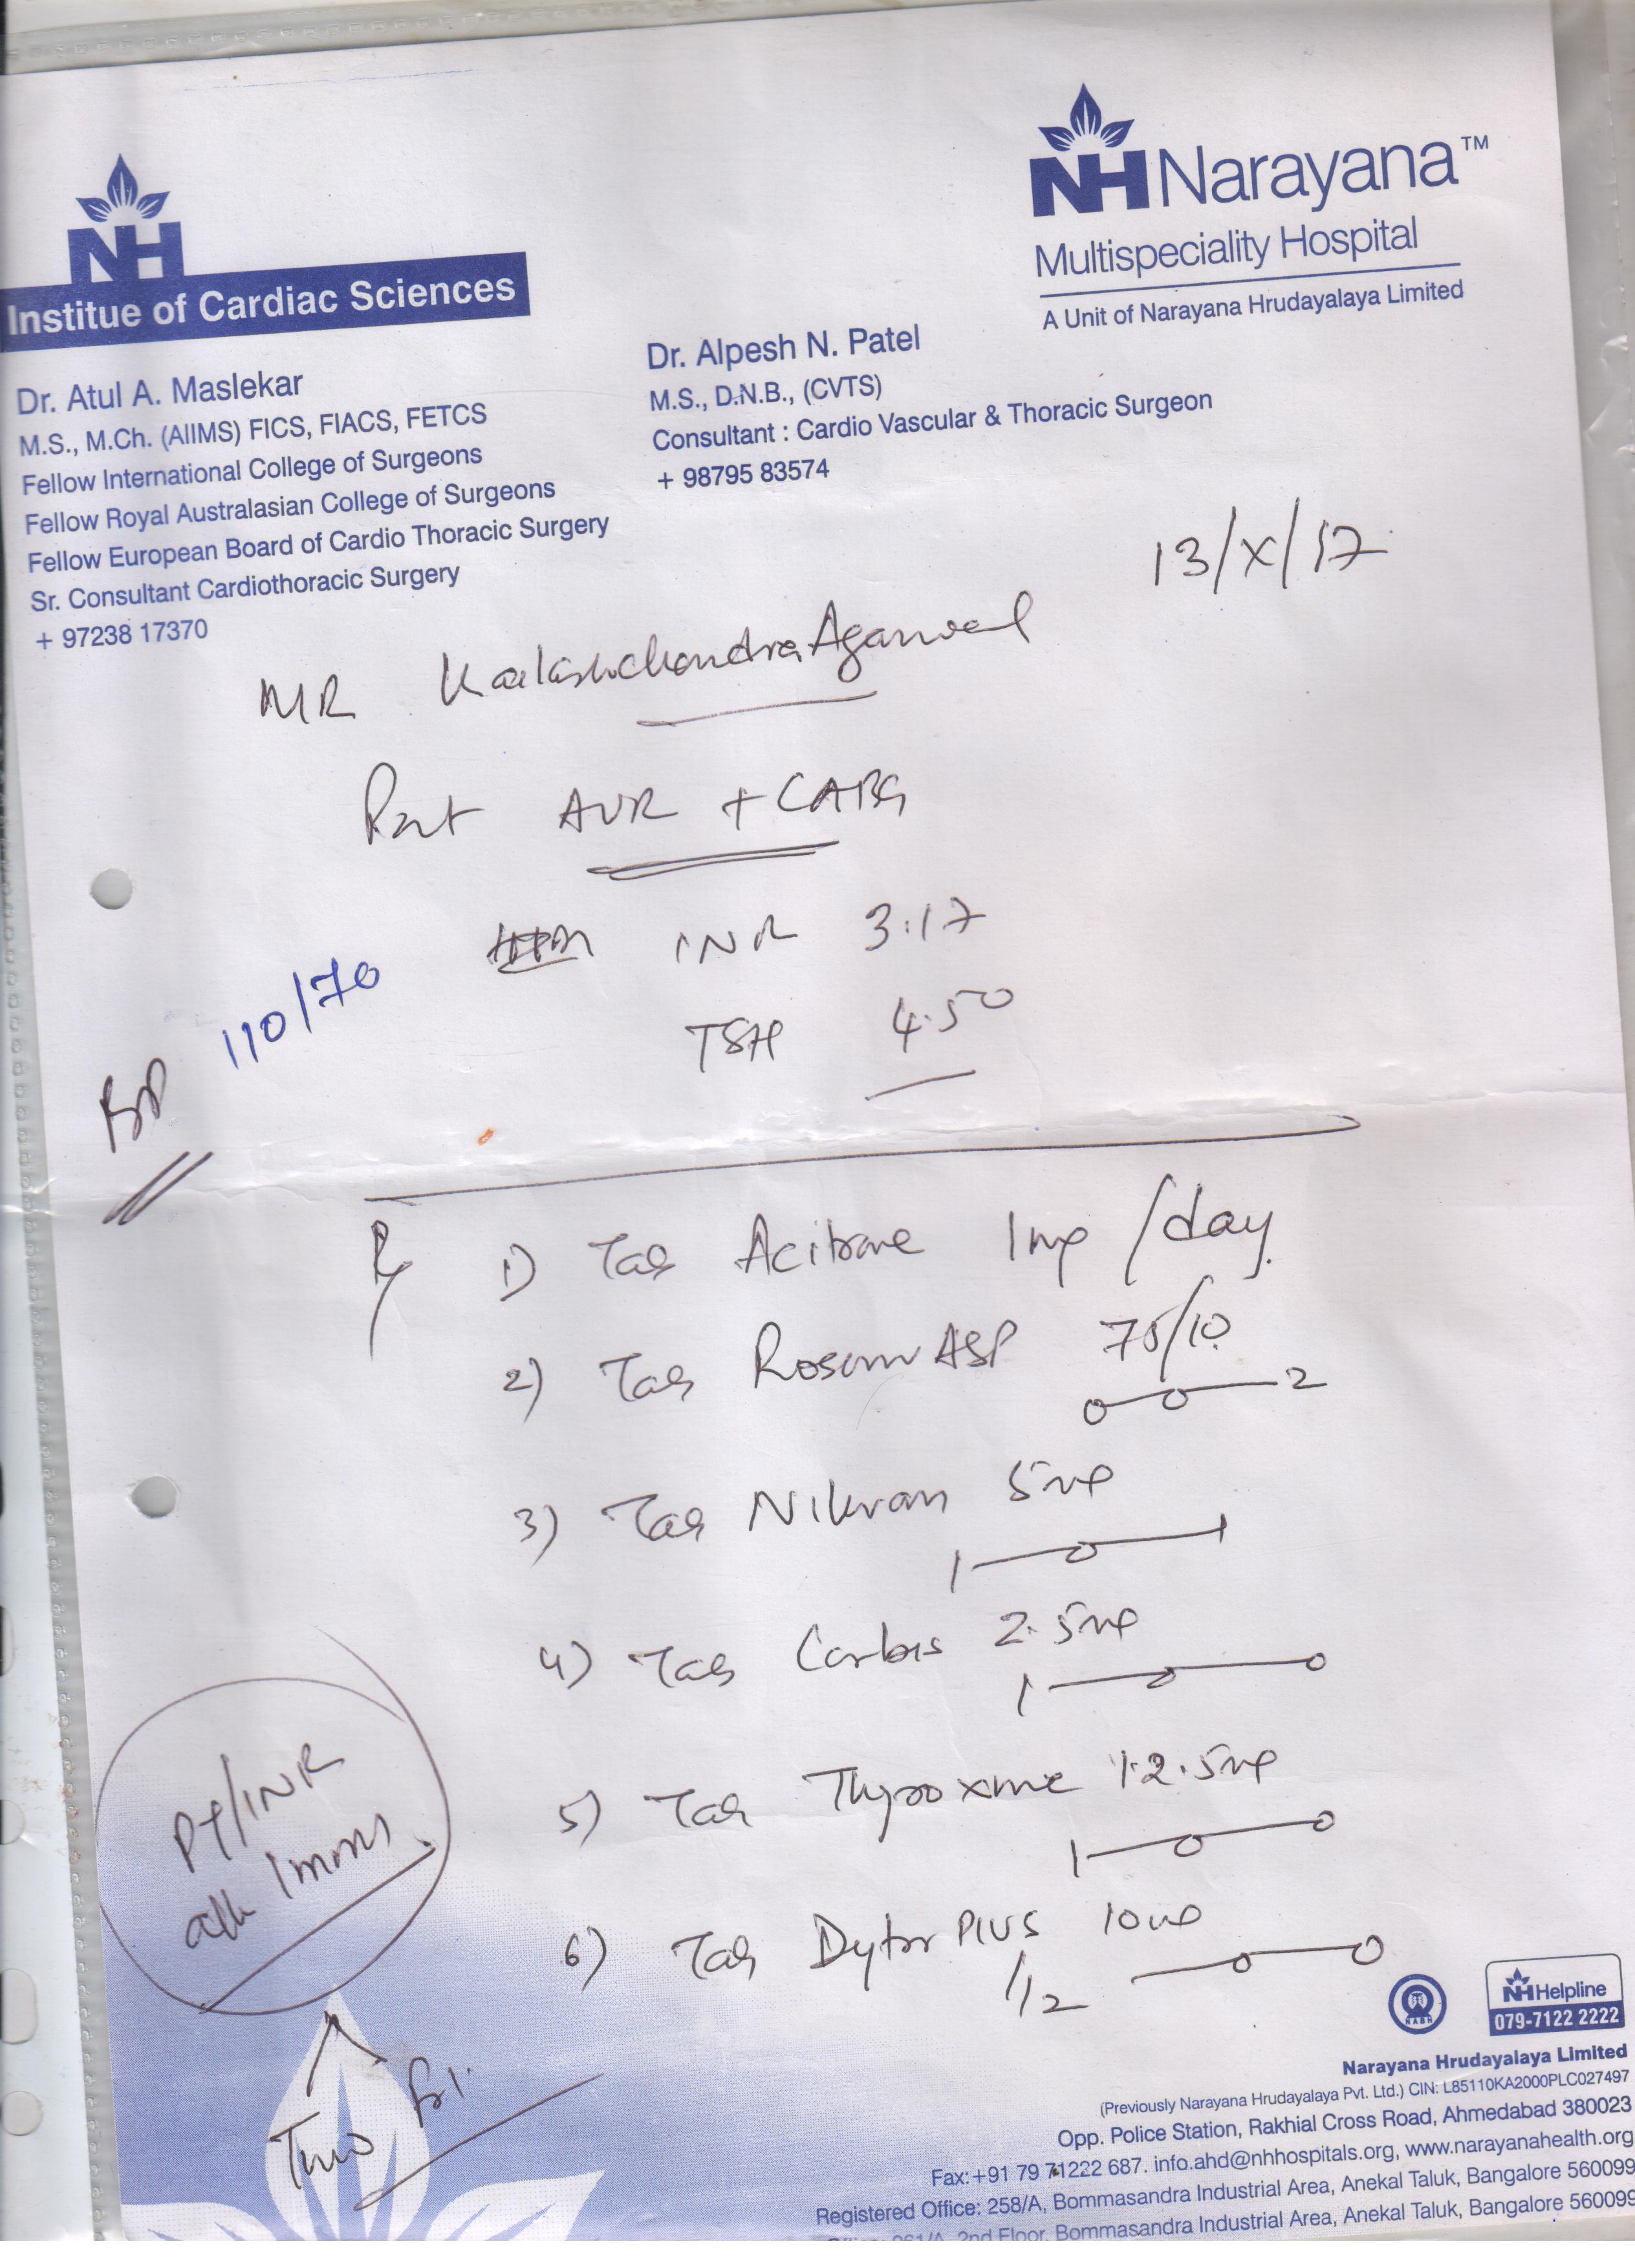 NH
Institue of Cardiac Sciences
NH Narayana™
Multispeciality Hospital
A Unit of Narayana Hrudayalaya Limited
Dr. Atul A. Maslekar
M.S., M.Ch. (AIIMS) FICS, FIACS, FETCS
Fellow International College of Surgeons
Fellow Royal Australasian College of Surgeons
Fellow European Board of Cardio Thoracic Surgery
Sr. Consultant Cardiothoracic Surgery
+ 97238 17370
Dr. Alpesh N. Patel
M.S., D.N.B., (CVTS)
Consultant : Cardio Vascular & Thoracic Surgeon
+ 98795 83574
13/X/17
MR Kailashchandra Agarwal
Post AVR + CABG
INR 3.17
TSH 4.50
BP 110/70
Rx 1) Tab Acitrom 1mg /day
2) Tab ASP 75/10
0-0-2
3) Tab 5mg
1-0-1
4) Tab 2.5mg
1-0-0
5) Tab Thyroxine 12.5mg
1-0-0
6) Tab Dytor Plus 10mg
1/2-0-0
PT/INR
Two
NABH
NH Helpline
079-7122 2222
Narayana Hrudayalaya Limited
(Previously Narayana Hrudayalaya Pvt. Ltd.) CIN: L85110KA2000PLC027497
Opp. Police Station, Rakhial Cross Road, Ahmedabad 380023
Fax:+91 79 71222 687. info.ahd@nhhospitals.org, www.narayanahealth.org
Registered Office: 258/A, Bommasandra Industrial Area, Anekal Taluk, Bangalore 560099
2nd Floor, Bommasandra Industrial Area, Anekal Taluk, Bangalore 560099